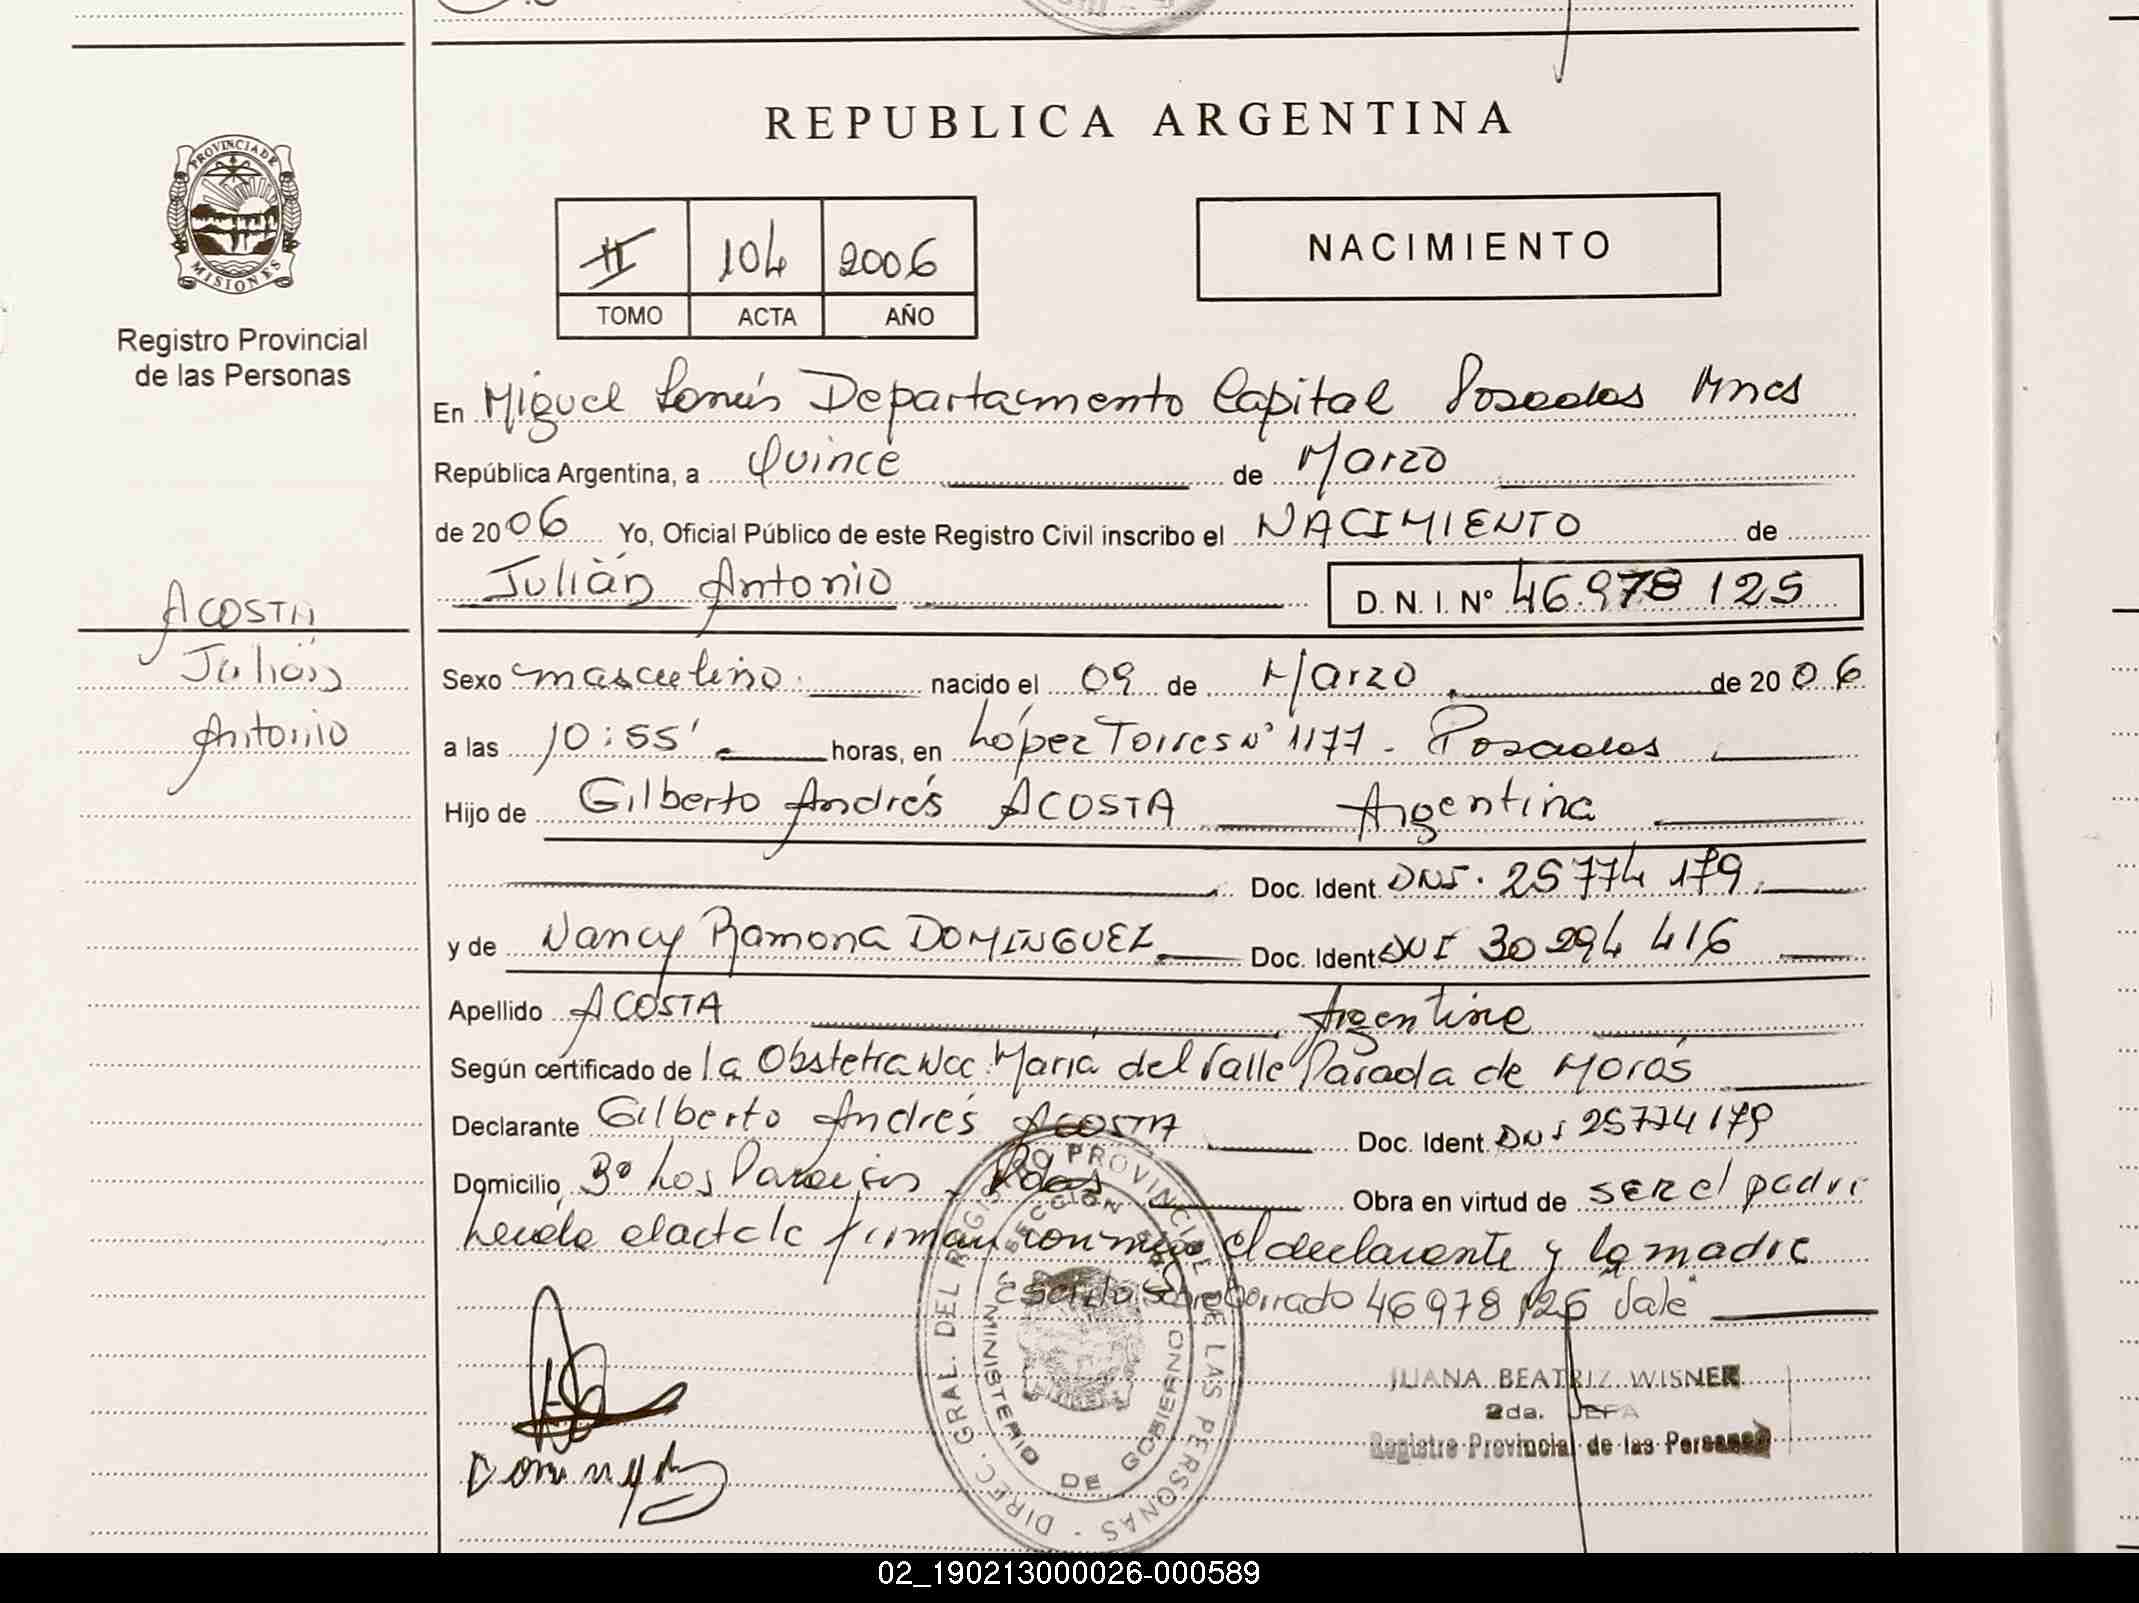 REPUBLICA ARGENTINA
PROVINCIA DE
MISIONES
Registro Provincial
de las Personas
II 104 2006
TOMO ACTA AÑO
NACIMIENTO
En Miguel Lanús Departamento Capital Posadas Mnes
República Argentina, a Quince de Marzo
de 2006 Yo, Oficial Público de este Registro Civil inscribo el NACIMIENTO de
Julián Antonio D. N. I. Nº 46.978 125
ACOSTA
Julián
Antonio
Sexo masculino nacido el 09 de Marzo de 2006
a las 10:55' horas, en López Torres Nº 1177 - Posadas
Hijo de Gilberto Andrés ACOSTA Argentina
Doc. Ident. DNI. 25774 179
y de Nancy Ramona DOMINGUEZ Doc. Ident. DNI 30 294 416
Apellido ACOSTA Argentina
Según certificado de la Obstetra Nac. María del Valle Parada de Morás
Declarante Gilberto Andrés ACOSTA Doc. Ident. DNI 25774179
Domicilio Bº Los Paraisos - Pdas Obra en virtud de ser el padre
Leída el acta la firman conmigo el declarante y la madre
Escrito Sobreborrado 46978 125 "Vale"
DIREC. GRAL. DEL REGISTRO PROVINCIAL DE LAS PERSONAS
MINISTERIO DE GOBIERNO
JUANA BEATRIZ WISNER
2da. JEFA
Registro Provincial de las Personas
02_190213000026-000589